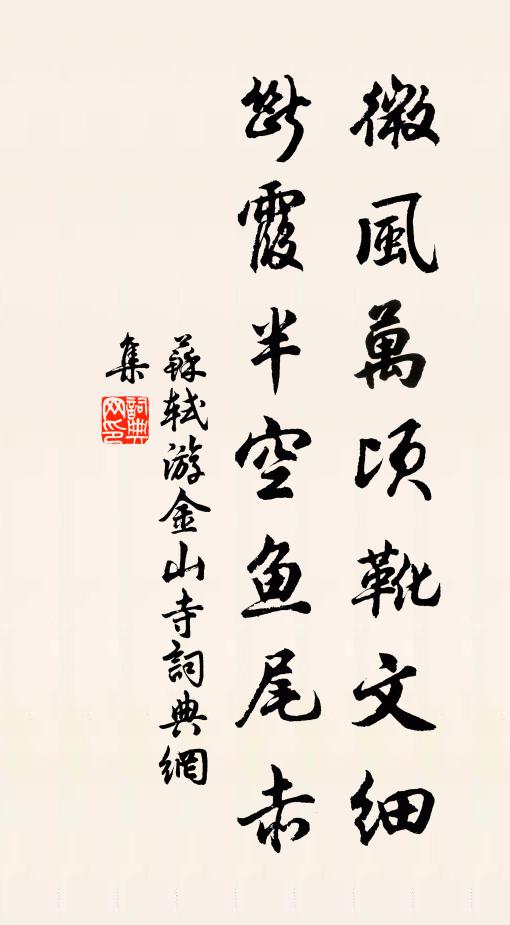 微風萬頃靴文細
斷霞半空魚尾赤
蘇軾游金山寺詞典網
集
詞典网印